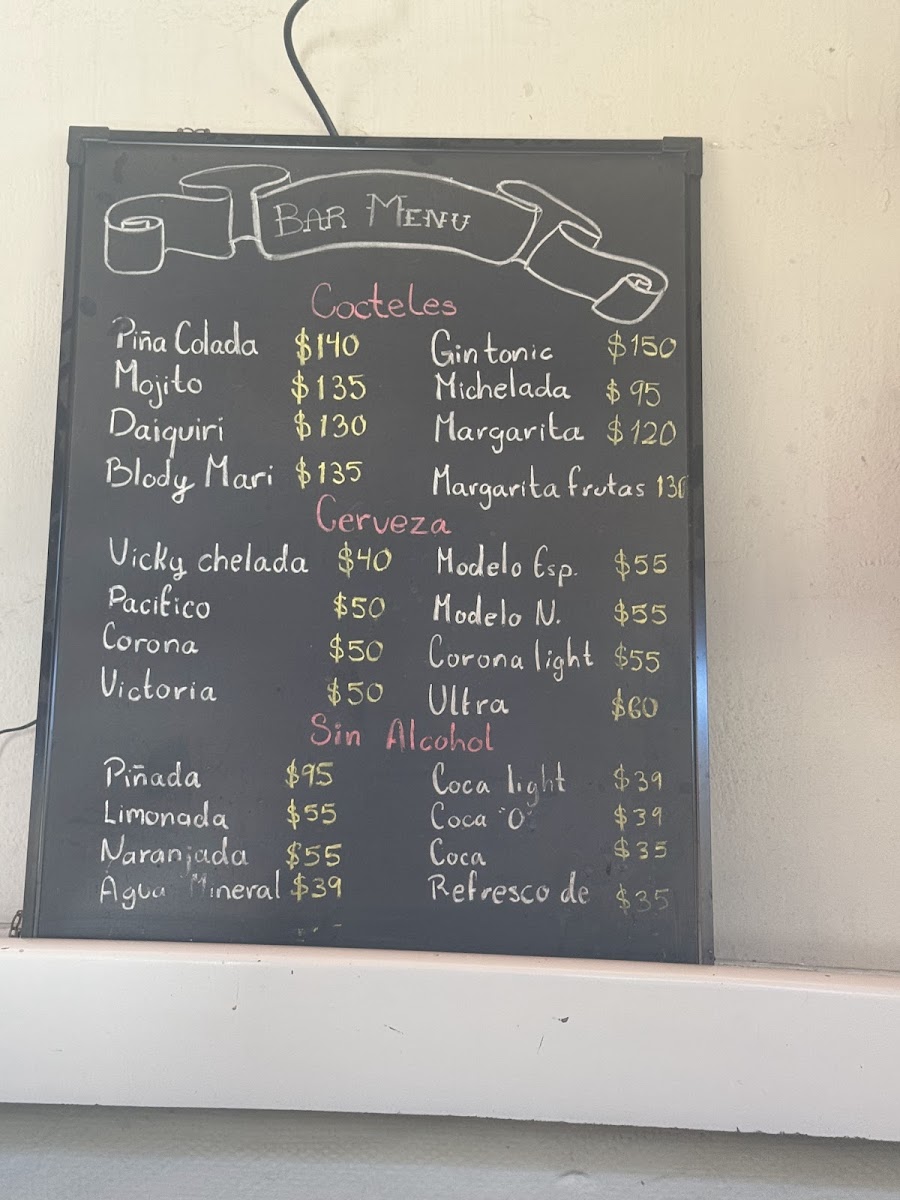 BAR MENU
Cocteles
Piña Colada $140 Gin tonic $150
Mojito $135 Michelada $95
Daiquiri $130 Margarita $120
Blody Mari $135 Margarita frutas 130
Cerveza
Vicky chelada $40 Modelo Esp. $55
Pacifico $50 Modelo N. $55
Corona $50 Corona light $55
Victoria $50 Ultra $60
Sin Alcohol
Piñada $95 Coca light $39
Limonada $55 Coca "O" $39
Naranjada $55 Coca $35
Agua Mineral $39 Refresco de $35